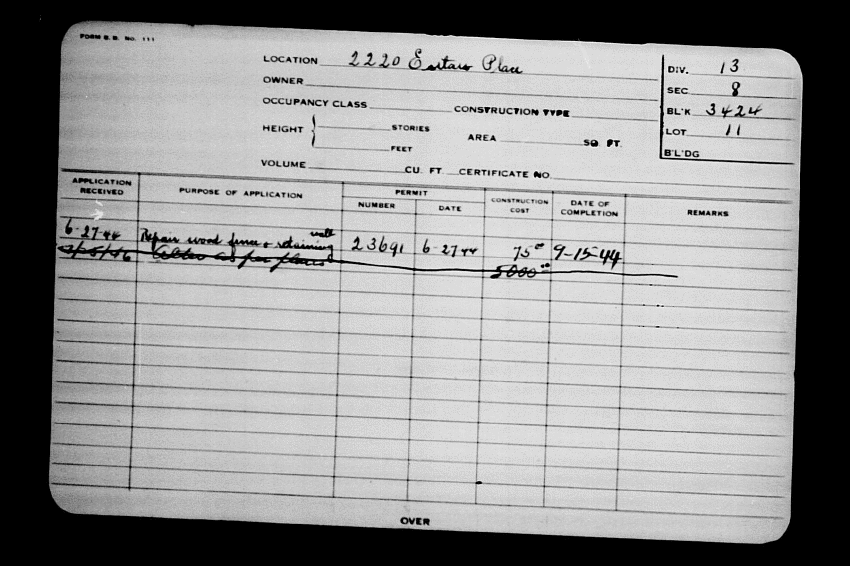 FORM B. B. No. 111
LOCATION 2220 Eutaw Place
OWNER
OCCUPANCY CLASS CONSTRUCTION TYPE
HEIGHT STORIES
FEET
AREA SQ. FT.
VOLUME CU. FT. CERTIFICATE NO.
DIV. 13
SEC 8
BL'K 3424
LOT 11
B'L'DG
APPLICATION RECEIVED PURPOSE OF APPLICATION PERMIT NUMBER DATE CONSTRUCTION COST DATE OF COMPLETION REMARKS
6-27-44 Repair wood fence + retaining wall 23691 6-27-44 75.00 9-15-44
Alter as per plans 5000.00
OVER